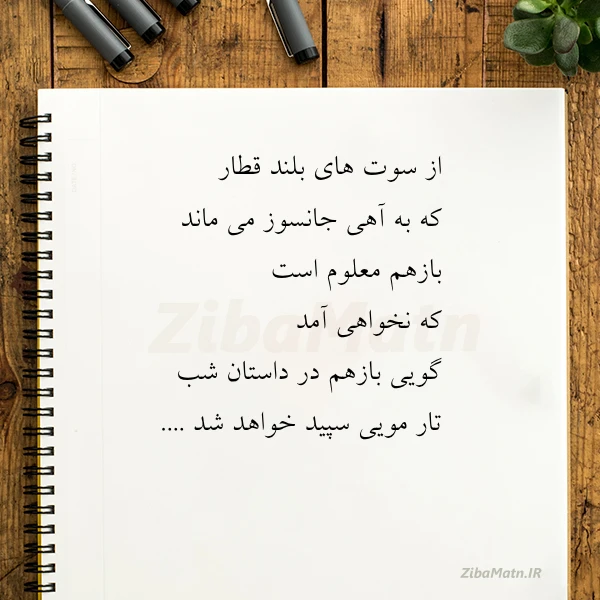 از سوت های بلند قطار
که به آهی جانسوز می ماند
بازهم معلوم است
که نخواهی آمد
گویی بازهم در داستان شب
تار مویی سپید خواهد شد ....
ZibaMatn
ZibaMatn.IR